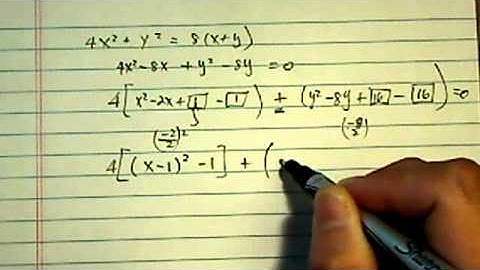 4x² + y² = 8(x+y)
4x² - 8x + y² - 8y = 0
4[x² - 2x + 1 - 1) + (y² - 8y + 16 - 16) = 0
(-2/2)² (-8/2)
4[(x-1)² - 1] + (